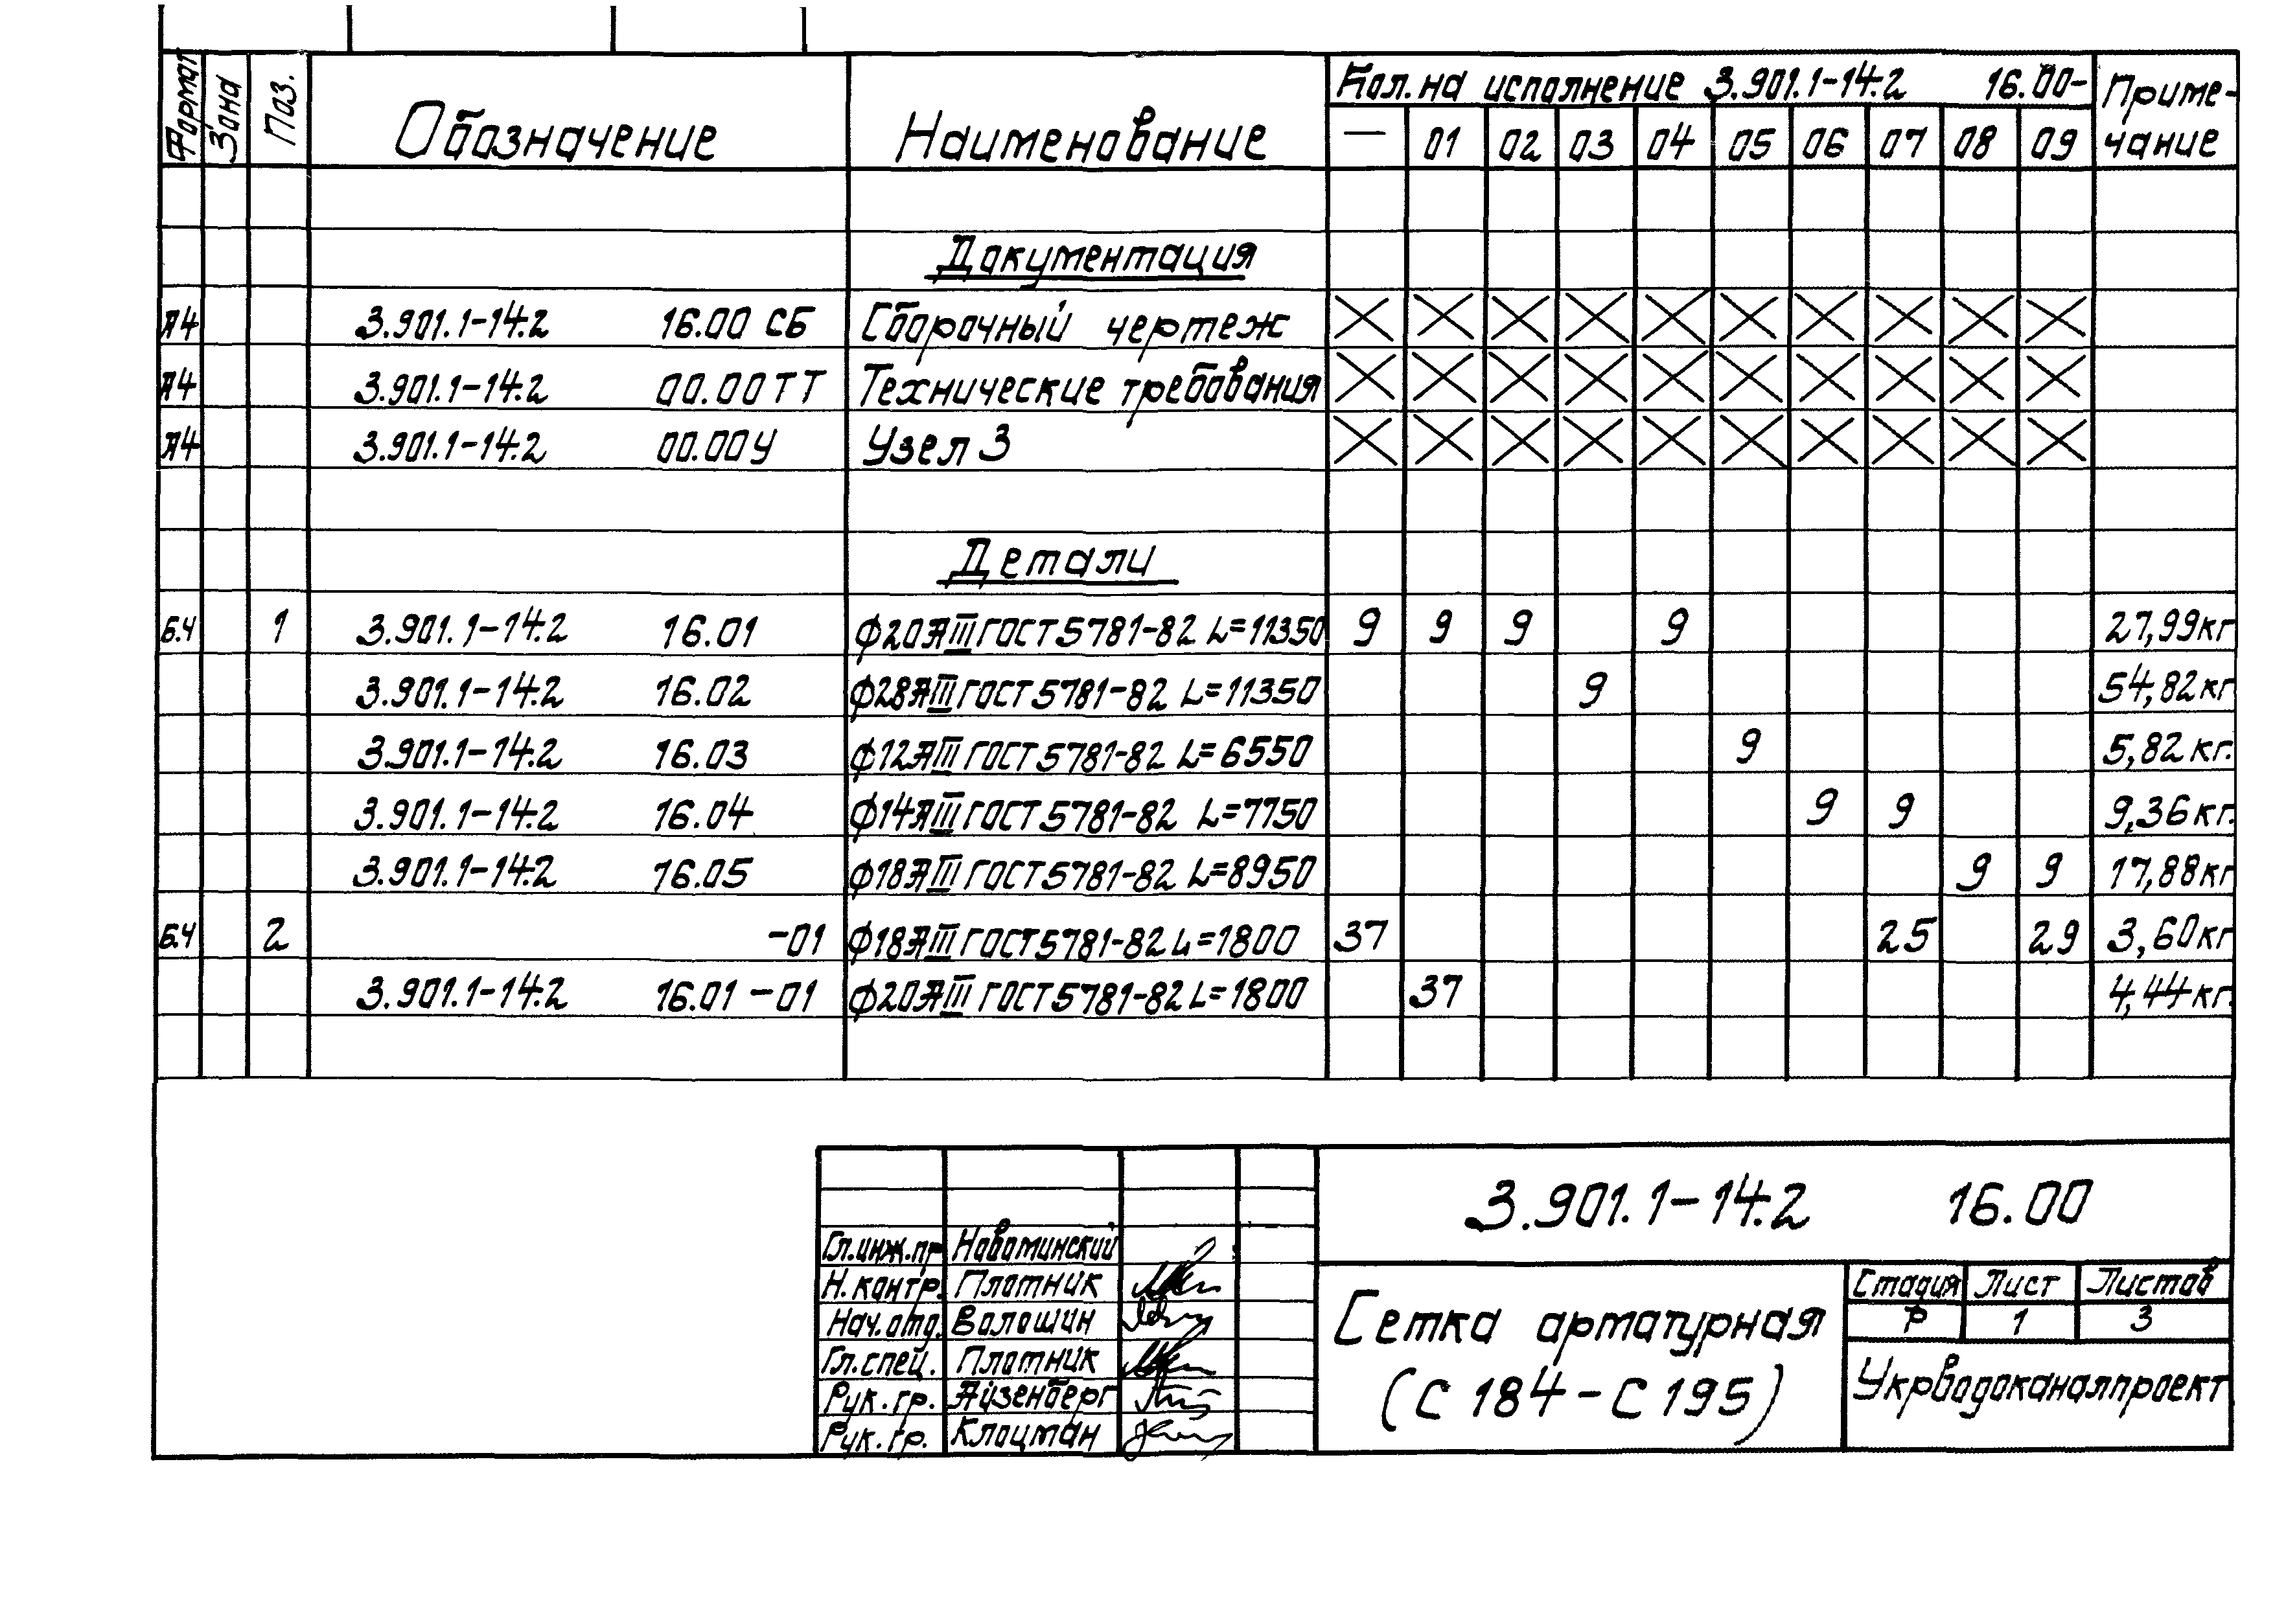 Формат Зона Поз. Обозначение Наименование Кол. на исполнение 3.901.1-14.2 16.00- Приме-
— 01 02 03 04 05 06 07 08 09 чание
Документация
А4 3.901.1-14.2 16.00 СБ Сборочный чертеж
А4 3.901.1-14.2 00.00 ТТ Технические требования
А4 3.901.1-14.2 00.00У Узел 3
Детали
Б.Ч 1 3.901.1-14.2 16.01 ф20АIII ГОСТ 5781-82 L=11350 9 9 9 9 27,99кг
3.901.1-14.2 16.02 ф28АIII ГОСТ 5781-82 L=11350 9 54,82кг
3.901.1-14.2 16.03 ф12АIII ГОСТ 5781-82 L=6550 9 5,82кг.
3.901.1-14.2 16.04 ф14АIII ГОСТ 5781-82 L=7750 9 9 9,36кг.
3.901.1-14.2 16.05 ф18АIII ГОСТ 5781-82 L=8950 9 9 17,88кг
Б.Ч 2 -01 ф18АIII ГОСТ 5781-82 L=1800 37 25 29 3,60кг
3.901.1-14.2 16.01-01 ф20АIII ГОСТ 5781-82 L=1800 37 4,44кг.
3.901.1-14.2 16.00
Гл.инж.пр Новоминский
Н.контр. Плотник
Нач.отд. Волошин
Гл.спец. Плотник
Рук.гр. Айзенберг
Рук.гр. Клоцман
Сетка арматурная
(С 184-С 195)
Стадия Лист Листов
Р 1 3
Укрводоканалпроект